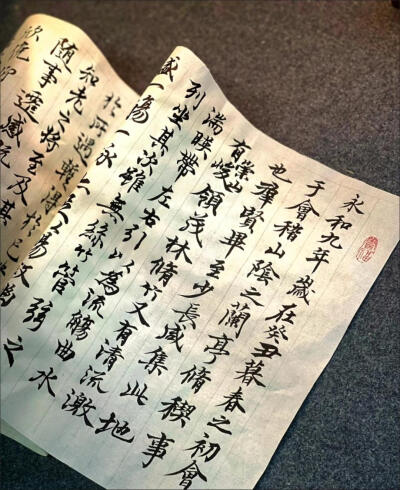 永和九年歲在癸丑暮春之初會
于會稽山陰之蘭亭脩稧事
也羣賢畢至少長咸集此地
有崇山峻領茂林脩竹又有清流激
湍暎帶左右引以為流觴曲水
列坐其次雖無絲竹管弦之
盛一觴一永
於所遇蹔得於己
知老之將至及其
隨事遷感慨